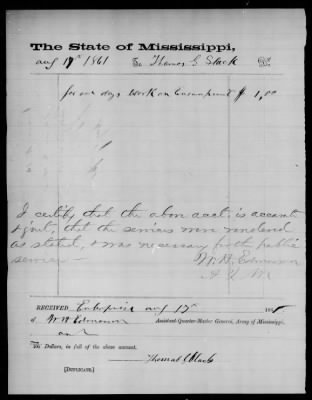 The State of Mississippi,
Aug 17th 1861 To Thomas G Slack Dr.
for one days work on Encampment $ 1,00
I certify that the above acct. is accurate
& just, that the services were rendered
as stated, & was necessary for the public
service — W. H.
A Q M
RECEIVED, Enterprise Aug 17th 186
of W H Assistant-Quarter-Master General, Army of Mississippi,
One and
Dollars, in full of the above account.
Thomas G Slack
[DUPLICATE.]